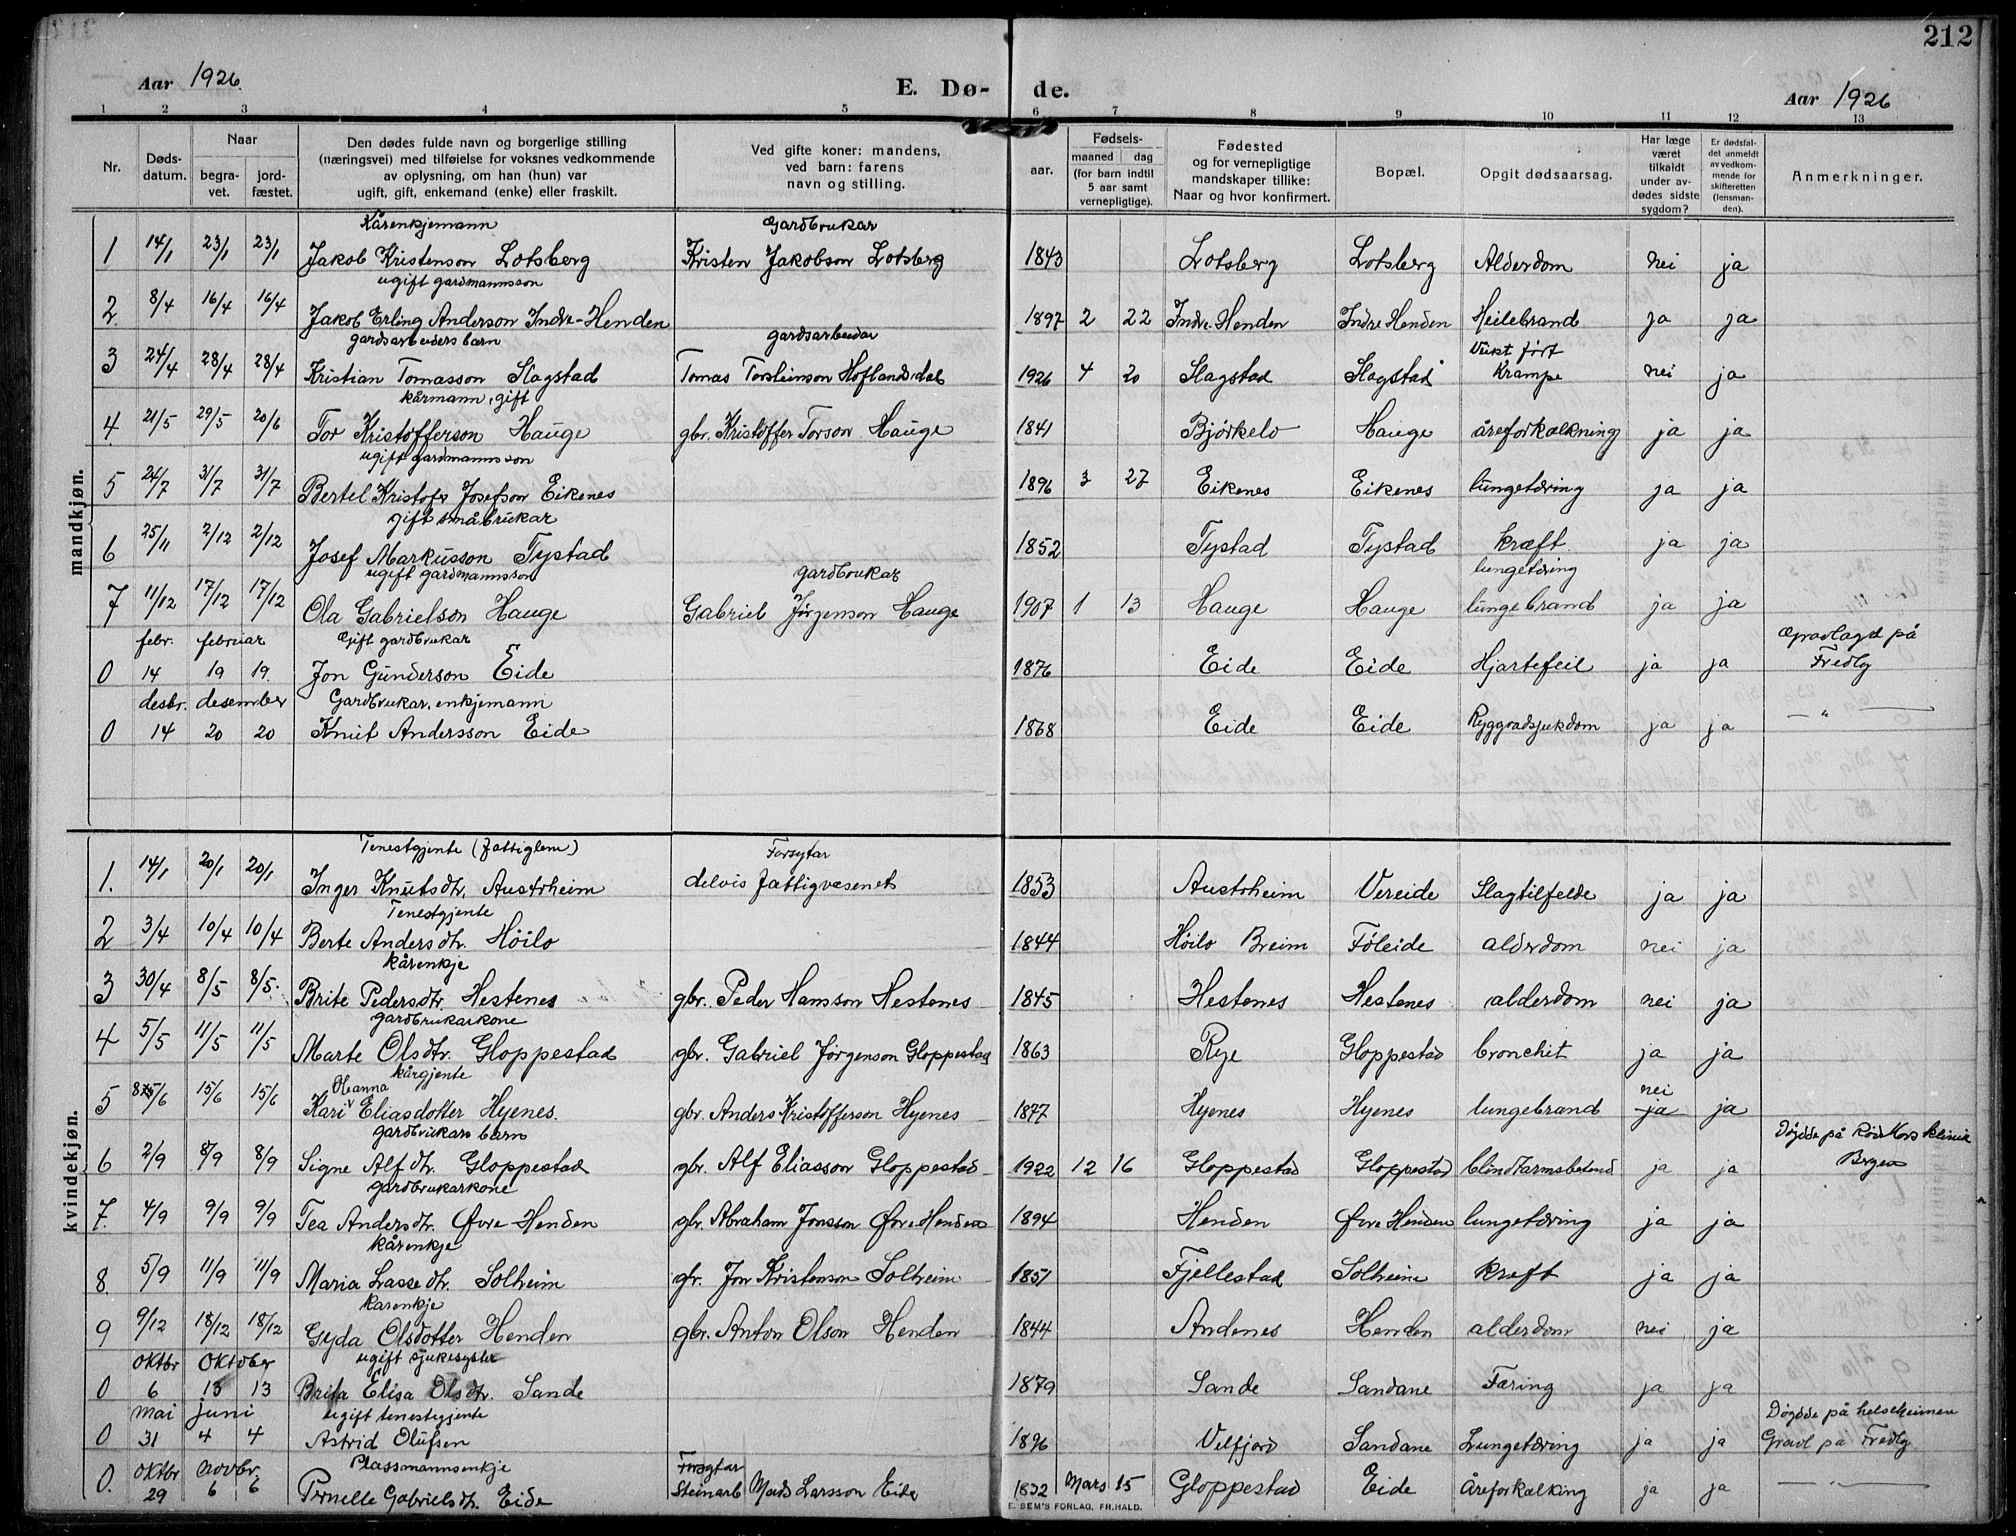 212
Aar 1926. E. Dø- de. Aar 1926
1 2 3 4 5 6 7 8 9 10 11 12 13
Nr. Døds-datum. Naar begra-vet. jord-fæstet. Den dødes fulde navn og borgerlige stilling (næringsvei) med tilføielse for voksnes vedkommende av oplysning, om han (hun) var ugift, gift, enkemand (enke) eller fraskilt. Ved gifte koner: mandens, ved barn: farens navn og stilling. Fødsels- aar. maaned dag (for barn indtil 5 aar samt vernepligtige). Fødested og for vernepligtige mandskaper tillike: Naar og hvor konfirmert. Bopæl. Opgit dødsaarsag. Har læge været tilkaldt under av-dødes sidste sygdom? Er dødsfal-det anmeldt av vedkom-mende for skifteretten (lensman-den). Anmerkninger.
mandkjøn.
Kårenkjemann Gardbrukar
1 14/1 23/1 23/1 Jakob Kristenson Lotsberg Kristen Jakobson Lotsberg 1843 Lotsberg Lotsberg Alderdom nei ja
ugift gardmannsson
2. 8/4 16/4 16/4 Jakob Erling Anderson Indre-Henden 1897 2 22 Indre-Henden Indre Henden Heilebrand ja ja
gardsarbeiders barn gardsarbeidar Veikt født
3 24/4 28/4 28/4 Kristian Tomasson Slagstad Tomas Torsteinson Hoflandsdal 1926 4 20 Slagstad Slagstad Krampe nei ja
kårmann, gift
4 21/5 29/5 20/6 Tor Kristofferson Hauge gbr. Kristoffer Torson Hauge 1841 Bjørkelo Hauge åreforkalkning ja ja
ugift gardmannsson
5 24/7 31/7 31/7 Bertel Kristofer Josefson Eikenes 1896 3 27 Eikenes Eikenes lungetæring ja ja
gift småbrukar
6 25/11 2/12 2/12 Josef Markusson Tystad 1852 Tystad Tystad kræft ja ja
ugift gardmannsson gardbrukar lungetæring
7 11/12 17/12 17/12 Ola Gabrielson Hauge Gabriel Jørgenson Hauge 1907 1 13 Hauge Hauge lungebrand ja ja
febr. februar Gift gardbrukar Gravlagd på
0 14 19 19. Jon Gunderson Eide 1876 Eide Eide Hjartefeil ja ja Fredly
desbr. desember Gardbrukar, enkjemann
0 14 20 20 Knut Andersson Eide 1868 Eide Eide Ryggradsjukdom ja ja — " —
kvindekjøn.
Tenestgjente (fattiglem) Forsytar
1. 14/1 20/1 20/1 Inger Knutsdtr. Austrheim delvis fattigvæsenet 1853 Austrheim Vereide Slagtilfelde ja ja
Tenestgjente
2 3/4 10/4 10/4 Berte Andersdtr. Höilo 1844 Höilo Breim Föleide alderdom nei ja
kårenkje
3 30/4 8/5 8/5. Brite Pedersdtr. Hestenes gbr. Peder Hansson Hestenes 1845 Hestenes Hestenes alderdom nei ja
gardbrukarkone
4 5/5 11/5 11/5 Marte Olsdtr. Gloppestad gbr. Gabriel Jørgenson Gloppestad 1863 Rye Gloppestad bronchit ja ja
kårgjente
Oleanna nei
5 8/6 15/6 15/6 Kari Eliasdotter Hyenes. gbr. Anders Kristofferson Hyenes 1877 Hyenes Hyenes lungebrand ja ja
gardbrukars barn Døydde på Röd Kors klinik
6 2/9 8/9 8/9 Signe Alfdtr. Gloppestad gbr. Alf Eliasson Gloppestad 1922 12 16 Gloppestad Gloppestad blindtarmsbetend ja ja Bergen
gardbrukarkone
7. 4/9 9/9 9/9 Tea Andersdtr. Øvre Henden gbr. Abraham Jonsson Øvre Henden 1894 Henden Øvre Henden lungetæring ja ja
kårenkje
8. 5/9 11/9 11/9 Maria Lassedtr. Solheim gbr. Jon Kristenson Solheim 1851 Fjellestad Solheim kreft ja ja
kårenkje
9 9/12 18/12 18/12 Gyda Olsdotter Henden gbr. Anton Olson Henden 1844 Andenes Henden alderdom nei ja
oktbr oktober ugift sjukesyster
0 6 13 13 Brita Elisa Olsdtr. Sande 1879 Sande Sandane Tæring ja ja
mai juni ugift tenestgjente Døydde på helseheimen
0 31 4 4 Astrid Olufsen 1896 Velfjord Sandane Lungetæring ja ja Gravl på Fredly
oktbr novbr. Plassmannsenkje Forsytar
0. 29 6 6 Pernelle Gabrielsdtr. Eide Steinarb Mads Larsson Eide 1832 Mars 15 Gloppestad Eide Åreforkalking ja ja — " —
E. SEM'S FORLAG, FR.HALD.